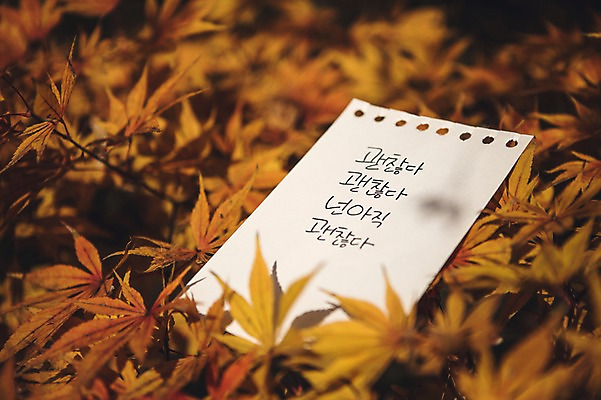 괜찮다
괜찮다
넌아직
괜찮다